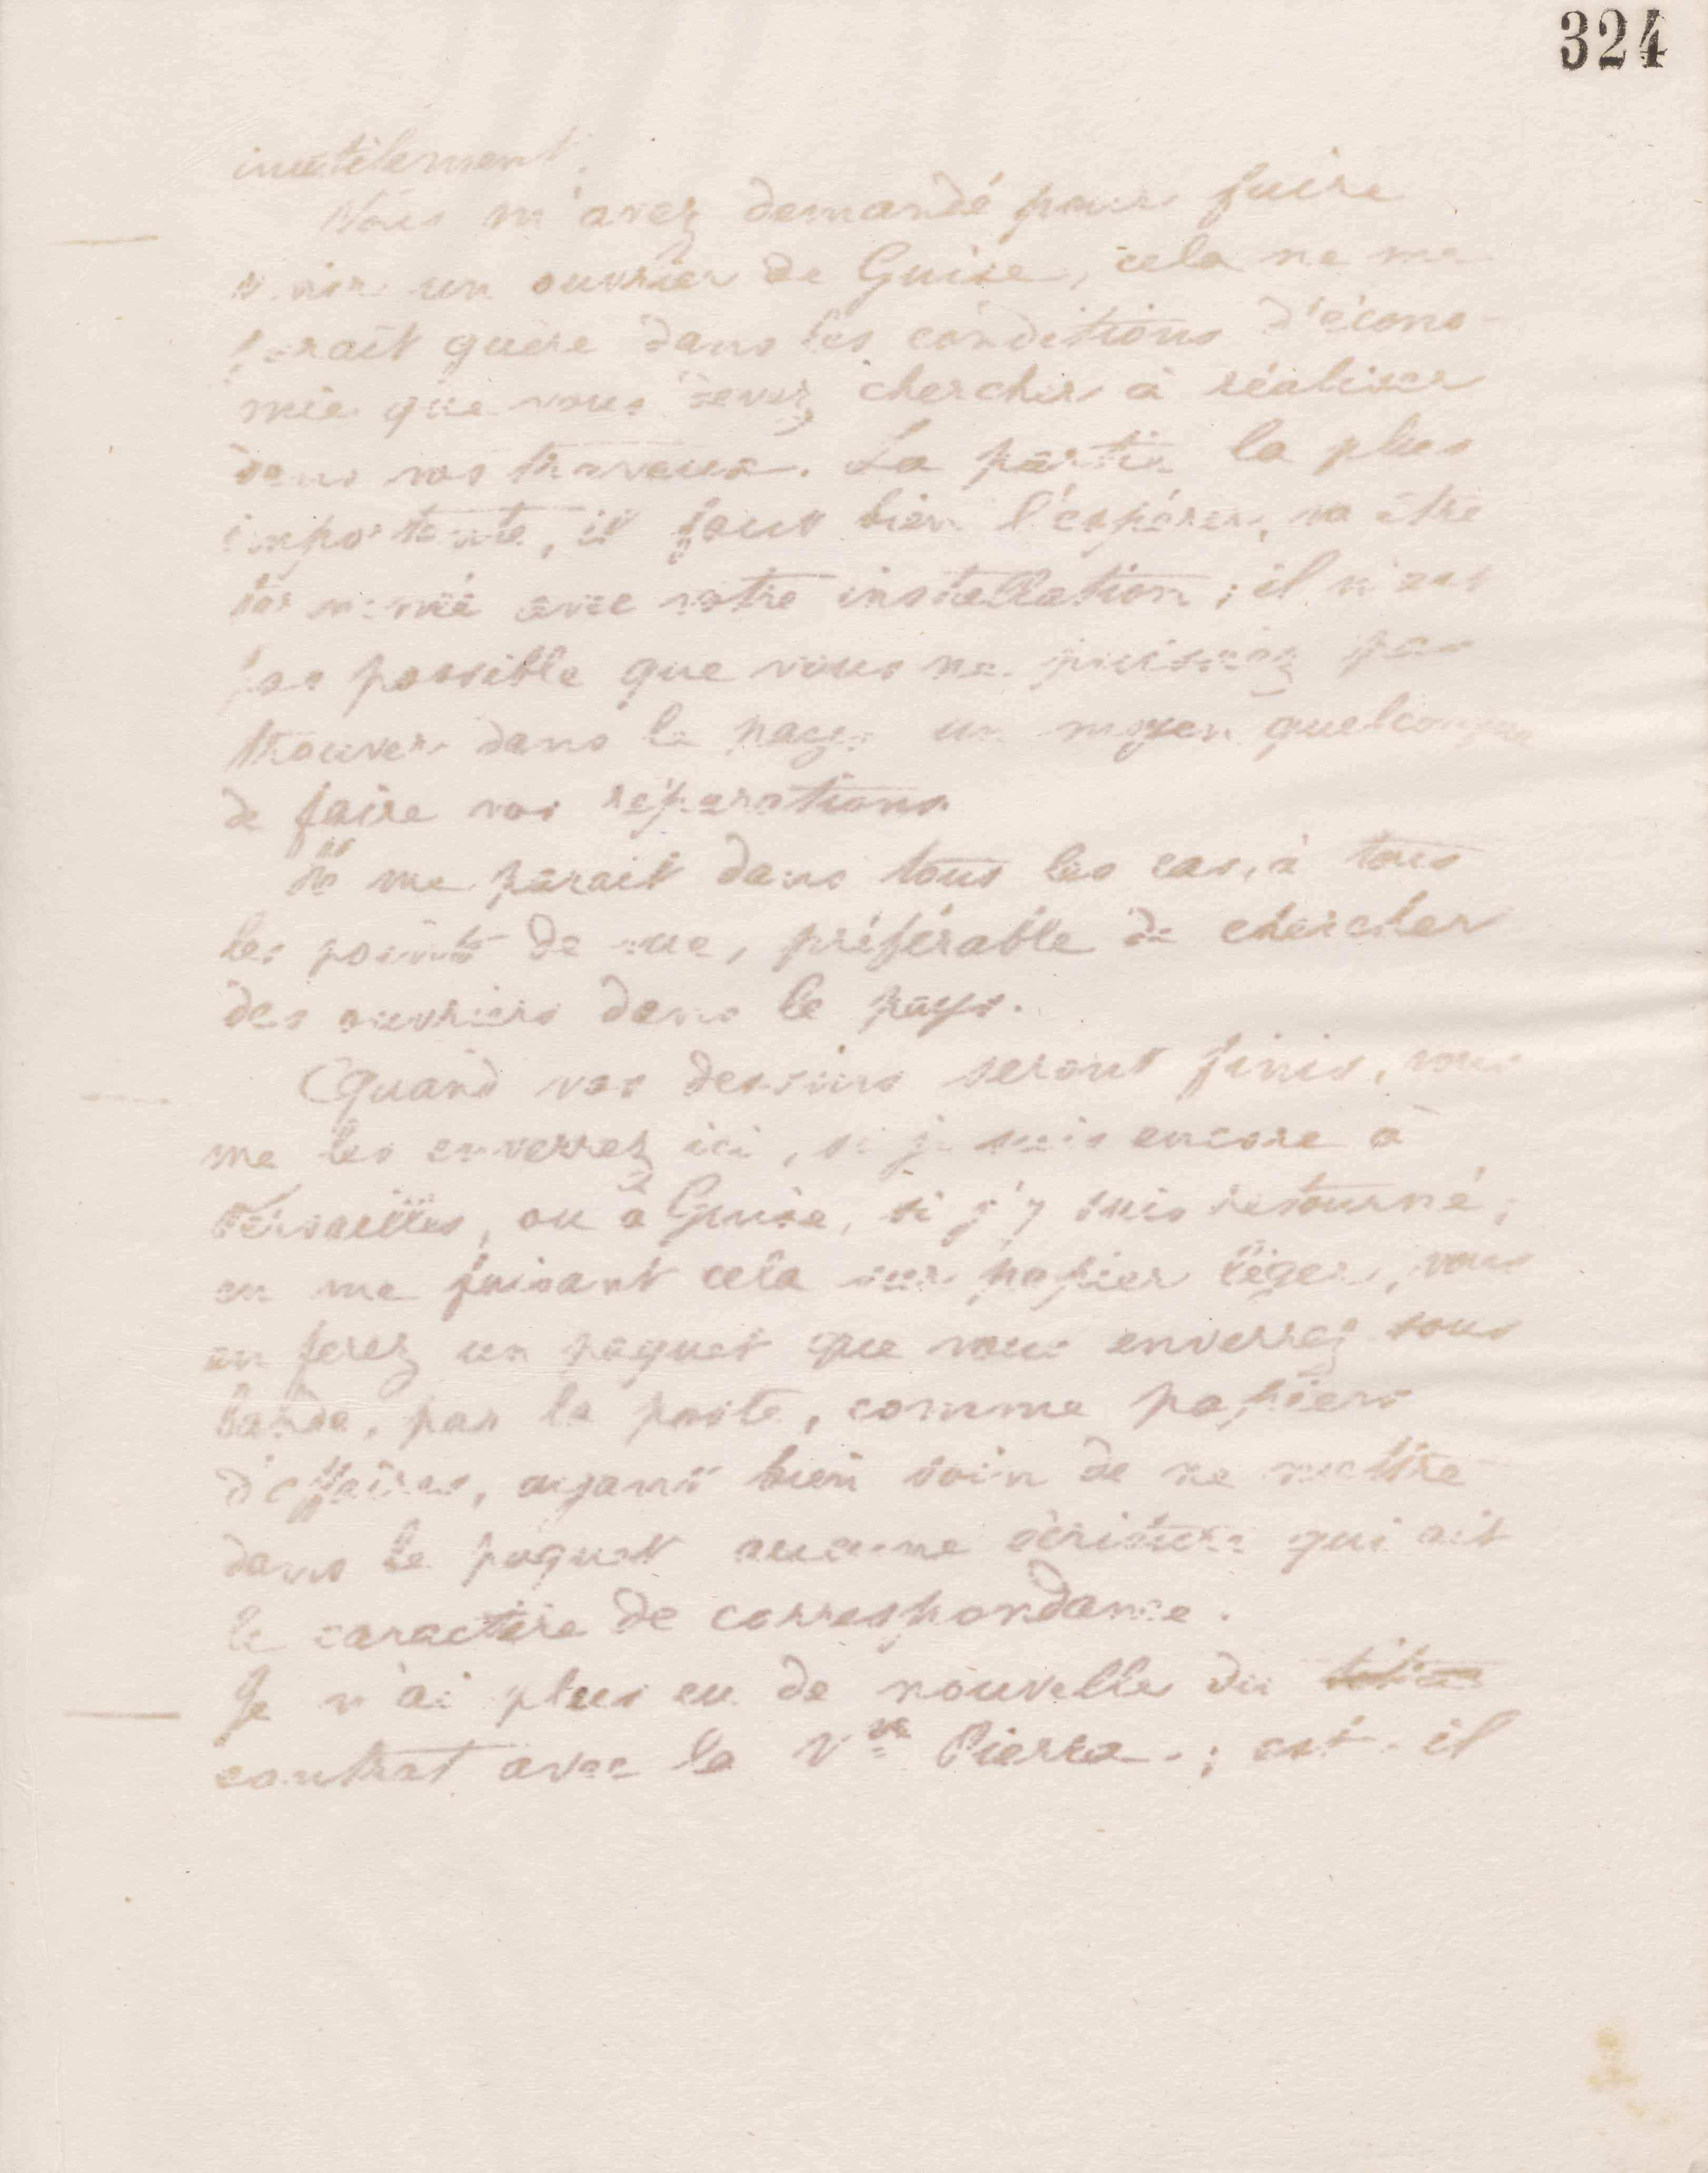 324
inutilement.
Vous m'avez demandé pour faire
venir un ouvrier de Guise, cela ne me
paraît guère dans les conditions d'écono-
mie que vous devez chercher à réaliser
dans vos travaux. La partie la plus
importante, il faut bien l'espérer, va être
terminée avec votre installation ; il n'est
pas possible que vous ne puissiez pas
trouver dans le pays un moyen quelconque
de faire vos réparations
Il me paraît dans tous les cas, à tous
les points de vue, préférable de chercher
des ouvriers dans le pays.
Quand vos dessins seront finis, vous
me les enverrez ici, si je suis encore à
Versailles, ou à Guise, si j'y suis retourné ;
en me faisant cela sur papier léger, vous
en ferez un paquet que vous enverrez sous
bande, par la poste, comme papiers
d'affaires, ayant bien soin de ne mettre
dans le paquet aucune écriture qui ait
le caractère de correspondance.
Je n'ai plus eu de nouvelle du
contrat avec la Vve Pierra. ; est-il